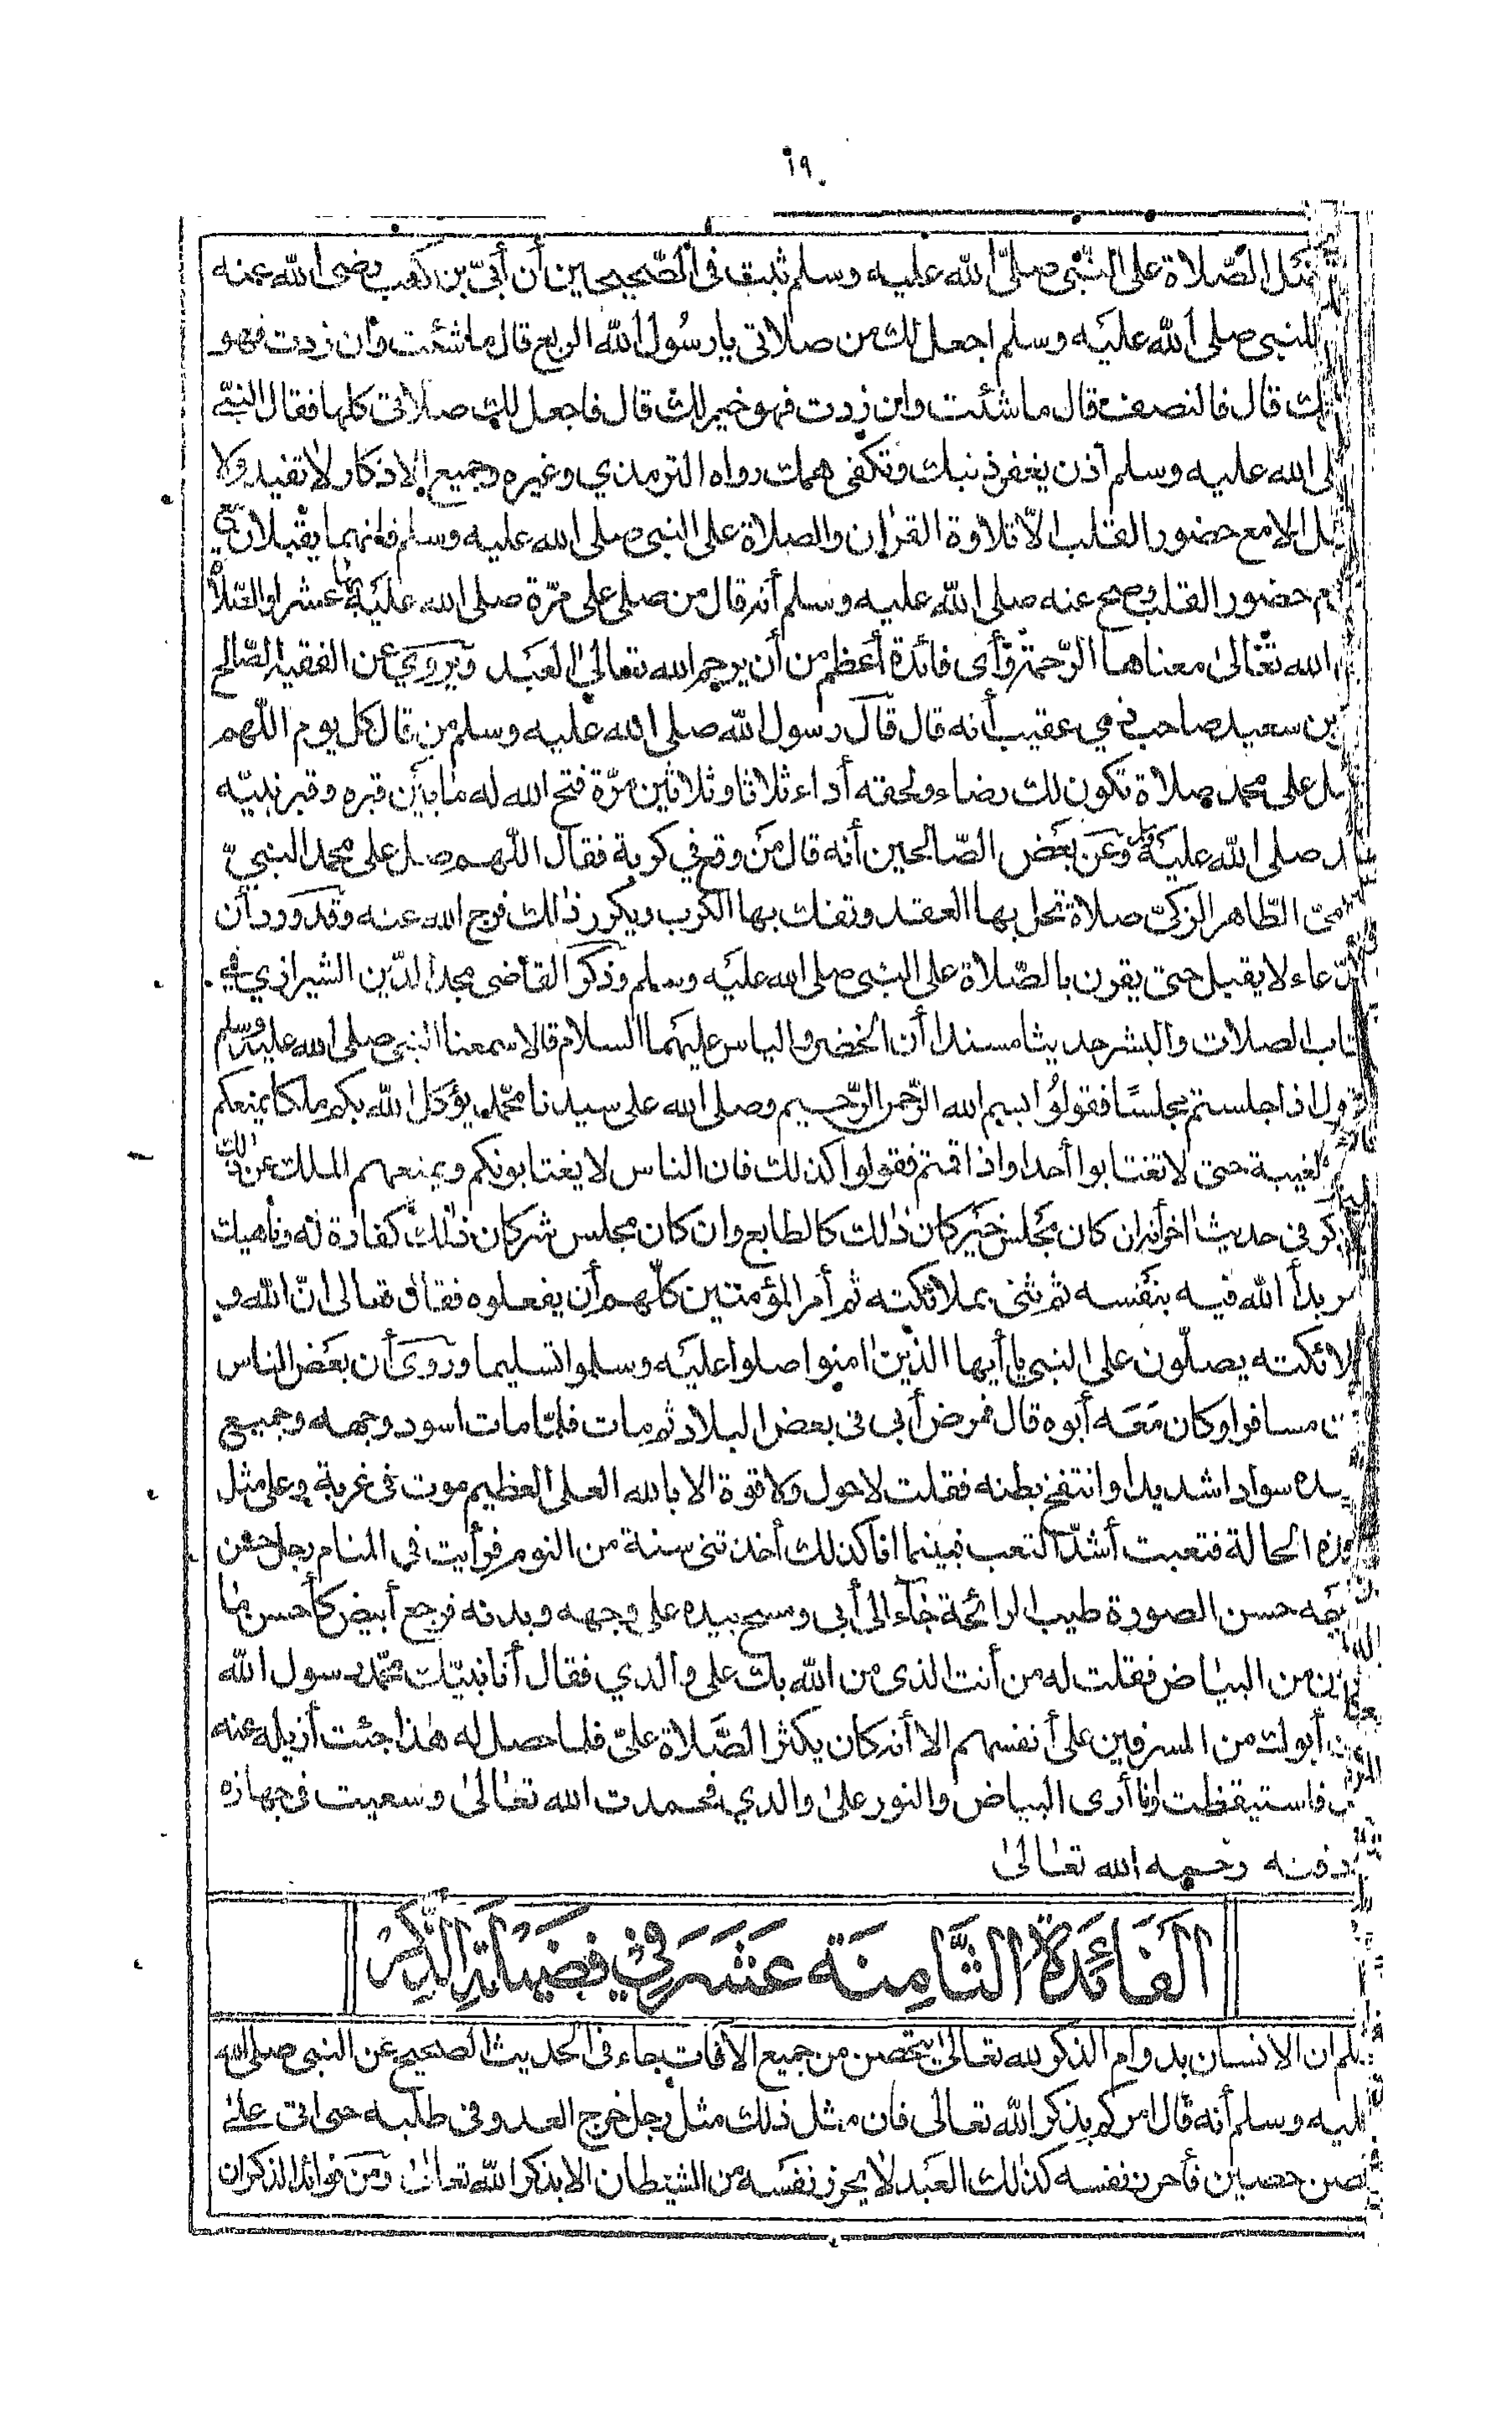 ١٩
الصّلاة على النّبى صلىّ الله عليه وسلم ثبت فى الصّحيحين أن أبىّ بن كعب رضى الله عنه
للنبى صلى الله عليه وسلم اجعل لك من صلاتى يا رسُول الله الربع قال ما شئت وان زدت فهو
لك قال فالنصف قال ما شئت وان زدت فهو خير لك قال فاجعل لك صلاتى كلها فقال النبىّ
الله عليه وسلم اذن يغفر ذنبك وتكفى همك رواه الترمذي وغيره وجميع الاذكار لا تفيد ولا
الا مع حضور القلب الاّ تلاوة القرآن والصلاة على النبى صلى الله عليه وسلم فانهما يقبلان
حضور القلب وصح عنه صلى الله عليه وسلم أنه قال من صلى على مرّة صلى الله عليه بها عشرا والصّلاة
الله تعالىٰ معناها الرّحمة وأى فائدة أعظم من أن يرحم الله تعالىٰ العبد ويروى عن الفقيه الصّالح
بن سعيد صاحب ذي عقيب أنه قال قال رسول الله صلى الله عليه وسلم من قال كل يوم اللّهم
صل على محمد صلاة تكون لك رضاء ولحقه أداء ثلاثا وثلاثين مرّة فتح الله له ما بين قبره وقبر نبيّه
صلى الله عليه وعن بعض الصّالحين أنه قال من وقع في كربة فقال اللّهم صل على محمد النبيّ
الطّاهر الزكىّ صلاة تحل بها العقد وتفك بها الكرب ويكرر ذلك فرج الله عنه وقد ورد أن
الدّعاء لا يقبل حتى يقرن بالصّلاة على النبى صلى الله عليه وسلم وذكر القاضى مجد الدّين الشيرازي في
كتاب الصلات والبشر حديثا مسندا أن الخضر والياس عليهما السلام قالا سمعنا النبى صلى الله عليه وسلم
يقول اذا جلستم مجلسًا فقولوا بسم الله الرّحمن الرّحيم وصلى الله على سيدنا محمّد يؤكل الله بكم ملكا يمنعكم
الغيبة حتى لا تغتابوا أحدا واذا قمتم فقولوا كذلك فان الناس لا يغتابونكم ويمنعهم الملك عن ذلك
فى حديث اخر أنه ان كان مجلس خير كان ذلك كالطابع وان كان مجلس شر كان ذلك كفارة له وناهيك
بدأ الله فيه بنفسه ثم ثنى بملائكته ثم أمر المؤمنين كلّهم أن يفعلوه فقال تعالى انّ الله و
ملائكته يصلّون على النبى يا أيها الذين امنوا صلوا عليه وسلموا تسليما وروى أن بعض الناس
مسافرا وكان معه أبوه قال فمرض أبي فى بعض البلاد ثم مات فلمّا مات اسود وجهه وجميع
سوادا شديدا وانتفخ بطنه فقلت لا حول ولا قوة الا بالله العلى العظيم موت فى غربة وعلى مثل
هذه الحالة فتعبت أشدّ التعب فبينما انا كذلك أخذتنى سنة من النوم فرأيت فى المنام رجل حسن
حسن الصورة طيب الرائحة جاء الى أبي ومسح بيده على وجهه وبدنه فرجع أبيض كأحسن ما
من البياض فقلت له من أنت الذى من الله بك على والدي فقال أنا نبيّك محمّد رسول الله
أبوك من المسرفين على أنفسهم الا أنه كان يكثر الصّلاة علىّ فلما حصل له هٰذا جئت أزيله عنه
فاستيقظت وأنا أرى البياض والنور علىٰ والدي فحمدت الله تعالىٰ وسعيت فى جهازه
ودفنه رحمه الله تعالىٰ
الفَائدَة الثَّامِنَة عَشَرَ فِي فَضِيْلَةِ الذِّكْر
ان الانسان بدوام الذكر لله تعالىٰ يتحصن من جميع الافات جاء فى الحديث الصحيح عن النبى صلى الله
عليه وسلم أنه قال امركم بذكر الله تعالى فان مثل ذلك مثل رجل خرج العدو فى طلبه حتى اتى علىٰ
حصن حصين فأحرز نفسه كذلك العبد لا يحرز نفسه من الشيطان الا بذكر الله تعالىٰ ومن فوائد الذكر ان